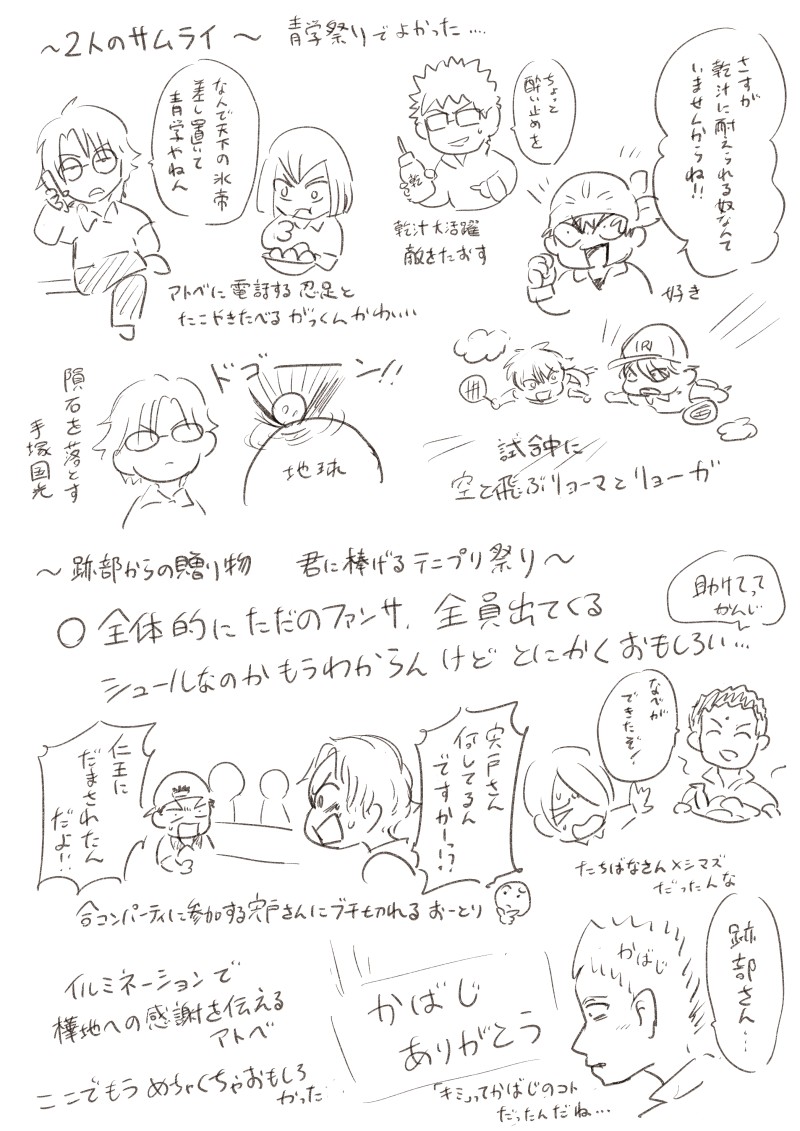 ～2人のサムライ～ 青学祭りでよかった....
なんで天下の氷帝
差し置いて
青学やねん
アトベに電話する忍足と
たこやきたべるがっくんかわいい...
ちょっと
酔い止めを
乾
乾汁大活躍
敵をたおす
さすが
乾汁に耐えられる奴なんて
いませんからね!!
好き
隕石を落とす
手塚国光
ドゴーーン!!
地球
R
試合中に
空を飛ぶリョーマとリョーガ
～跡部からの贈り物 君に棒げるテニプリ祭り～
○全体的にただのファンサ、全員出てくる
シュールなのかもうわからんけどとにかくおもしろい...
助けてって
かんじ
仁王に
だまされたん
だよ!!
宍戸さん
何してるん
ですかーっ!?
合コンパーティに参加する宍戸さんにブチ切れるおーとり
なべが
できたぞ!
たちばなさん×シマズ
だったんな
イルミネーションで
樺地への感謝を伝える
アトベ
ここでもうめちゃくちゃおもしろ
かった
かばじ
ありがとう
かばじ
跡部さん...
「キミ」ってかばじのコト
だったんだね...